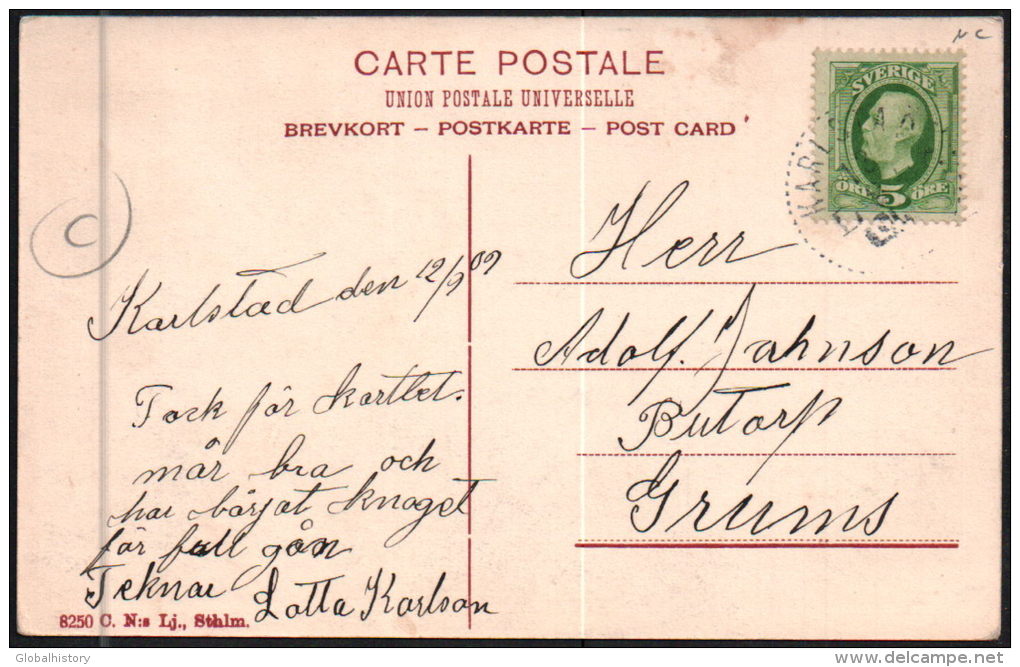 CARTE POSTALE
UNION POSTALE UNIVERSELLE
BREVKORT – POSTKARTE – POST CARD
SVERIGE
ÖRE 5 ÖRE
C
Karlstad den 12/9 09
Tack för kortlet.
mår bra och
har börjat knoget
för full gån
Teknar
Lotta Karlson
Herr
Adolf. Jahnson
Butorp
Grums
8250 C. N:s Lj., Sthlm.
Globalhistory
delcampe.net